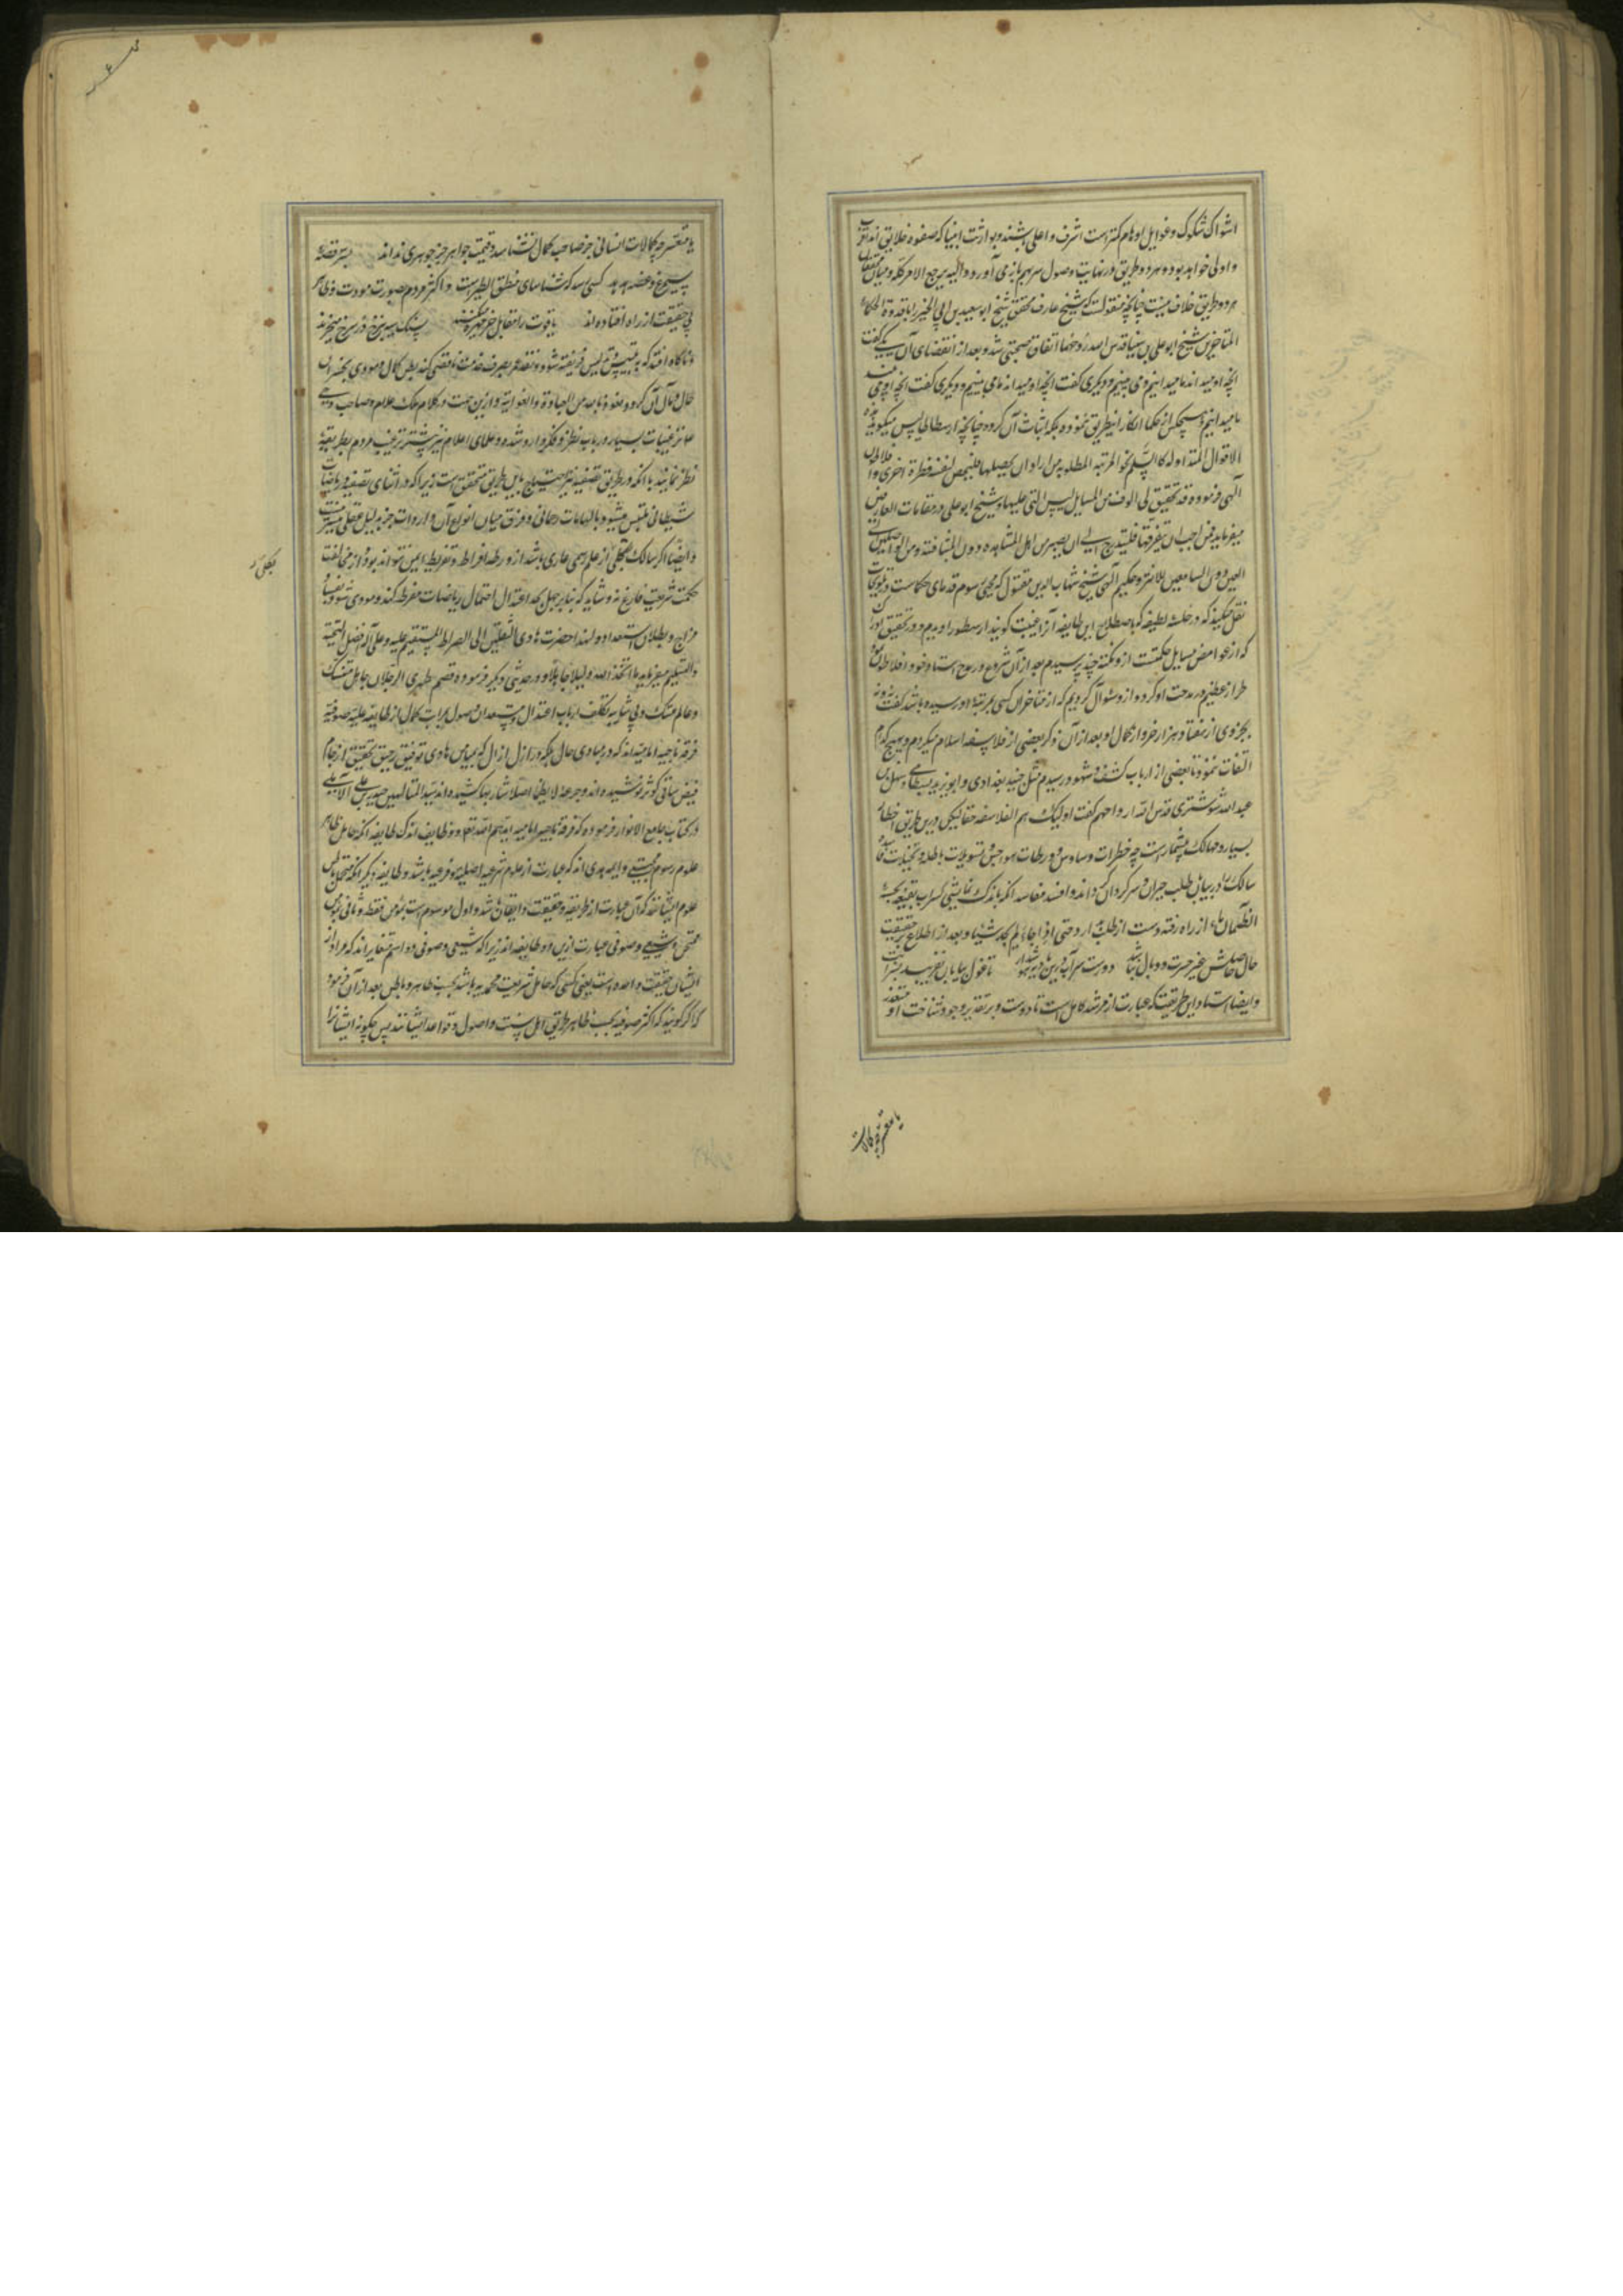 اشواک شکوک و غوایل اوهام کمتر است اشرف و اعلی باشند و بوراثت انبیا که صفوه خلایق اند اقرب
و اولی خواهد بود و هر دو طریق در نهایت وصول سر بهم بازمی آورد و الیه یرجع الامر کله و میان محققان
هر دو طریق خلاف نیست چنانچه منقولست که شیخ عارف محقق شیخ ابو سعید بن ابی الخیر را با قدوة الحکماء
المتاخرین شیخ ابو علی بن سینا قدس الله روحهما اتفاق صحبتی شد و بعد از انقضای آن یکی گفت
آنچه او میداند ما می بینیم و دیگری گفت آنچه او می بیند
ما میدانیم و هیچکس از حکما انکار این طریق ننموده بلکه اثبات آن کرده چنانچه ارسطاطالیس میگوید هذه
الاقوال المتداوله کالسلم نحو المرتبه المطلوبه من اراد ان یحصلها فلیحصل لنفسه فطرة اخری و افلاطون
الهی فرموده قد تحقق لی الوف من المسایل لیس لی علیها برهان و شیخ ابو علی در مقامات العارفین
میفرماید فمن احب ان یعرفها فلیتدرج الی ان یصیر من اهل المشاهده دون المشافهة و من الواصلین الی
العین دون السامعین للاثر و حکیم الهی شیخ شهاب الدین مقتول که محیی رسوم قدمای حکماست در تلویحات
نقل میکند که در خلسه لطیفه که باصطلاح این طایفه آنرا غیبت گویند ارسطو را دیدم و در تحقیق ادراک
که از غوامض مسایل حکمت است ازو نکته چند پرسیدم بعد از آن شروع در مدح استاد خود افلاطون نمود
طراز عظیم در مدحت او کرد و ازو سئوال کردم که از متاخران کسی بمرتبه او رسیده باشد گفت نه و نه
بجزوی از هفتاد هزار جزو از کمال او بعد از آن ذکر بعضی از فلاسفه اسلام میکردم و بهیچ کدام
التفات ننمود تا بعضی از ارباب کشف و شهود رسیدم مثل جنید بغدادی و ابو یزید بسطامی و سهل بن
عبد الله شوشتری قدس الله ارواحهم گفت اولئک هم الفلاسفه حقا لیکن درین طریق اخطار
بسیار و مهالک بیشمار است چه خطرات و ساوس و ورطات هواجس و تسویلات باطله و تخیلات فاسده
سالک را در بیابان طلب حیران و سرگردان گرداند و افسد مفاسد آنکه باندک نمایشی کسراب بقیعة یحسبه
الظمآن ماء از راه رفته دست از طلب باز دارد حتی اذا جاءه لم یجده شیئا و بعد از اطلاع بر حقیقت
حال حاصلش غیر حسرت و وبال نباشد دورست سرآب درین بادیه هشدار تا غول بیابان نفریبد بسرابت
و ایضا استاد این طریقت که عبارت از مرشد کامل است نادر است و بر تقدیر وجود شناخت او متعذر
یا متعسر چه کمالات
یا متعسر چه کمالات انسانی جز صاحب کمال نشناسد و قیمت جواهر جز جوهری نداند بسر قصه
سیمرغ و غصه هدهد کسی رسد که شناسای منطق الطیر است و اکثر مردم بصورت مودت و ظاهر
بی حقیقت از راه افتاده اند یاقوت را مقابل خرمهره میکنند
و ناگاه افتد که بتلبیس ابلیس فریفته شود و نقد عمر بصرف خدمت ناقصی کند بظن کمال و مودی بخسران
حال و مآل آن گردد نعوذ بالله من الغباوة و الغوایة و ازین جهت در کلام ملک علام و صاحب وحی
ترغیبات بسیار در باب نظر و فکر وارد شده و علمای اعلام نیز بیشتر ترغیب مردم بطریقه
نظر نمایند با آنکه در طریق تصفیه نیز احتیاج باین طریق متحقق است زیرا که در اثنای تصفیه و ریاضات
شیطانی ملتبس میشود بالهامات رحمانی و فرق میان انواع آن واردات جز بدلیل عقلی میسر نیست
و ایضا اگر سالک بکلی از علم رسمی عاری باشد از ورطه افراط و تفریط ایمن نتواند بود و از مخالفت
حکمت شریعت فارغ نه و شاید که بنا بر جهل بحد اعتدال احتمال ریاضات مفرطه کند و مودی شود بفساد
مزاج و بطلان استعداد و لهذا حضرت هادی الثقلین الی الصراط المستقیم علیه و علی آله افضل التحیة
و التسلیم میفرماید ما اتخذ الله ولیا جاهلا و در حدیثی دیگر فرموده قصم ظهری الرجلان جاهل متنسک
و عالم متهتک و بی شایبه تکلف ارباب اعتدال مستعدان وصول بمراتب کمال از طایفه علیه صوفیه
فرقه ناجیه امامیه اند که در مبادی حال بلکه در ازل آزال که بمیامن هادی توفیق رحیق تحقیق از جام
فیض ساقی کوثر نوشیده اند و جرعه لا یظما اصلا شاربها کشیده اند سید المتالهین حیدر بن علی الاملی
در کتاب جامع الانوار فرموده که فرقه ناجیه امامیه ایدهم الله تعالی دو طایفه اند یک طایفه آنکه حامل ظاهر
علوم رسوم نبی و ایمه هدی اند که عبارت از علوم شرعیه اصلیه و فرعیه باشد و طایفه دیگر آنکه متحمل باطن
علوم ایشانند که آن عبارت از طریقه و حقیقت و ایقان باشد و اول موسوم است بمؤمن فقط و ثانی بمؤمن
ممتحن و شیعی و صوفی عبارت ازین دو طایفه اند زیرا که شیعی و صوفی دو اسم متغایر اند که مراد از
ایشان حقیقت واحده است یعنی کسی که حامل شریعت محمدیه باشد بحسب ظاهر و باطن بعد از آن فرمود
که اگر گویند که اکثر صوفیه بحسب ظاهر بطریق اهل سنت و اصول و قواعد ایشانند پس چگونه ایشانرا
بکلی